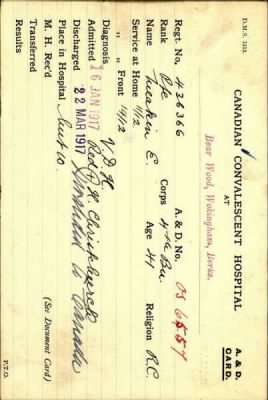 D.M.S. 1313.
CANADIAN CONVALESCENT HOSPITAL
A. & D. CARD.
AT
Bear Wood, Wokingham, Berks.
Regt. No. 436366 A. & D. No. OS 6557
Rank Pte Corps 4th Bn.
Name Meakin E. Age 41 Religion R.C.
Service at Home 11/12
„ „ Front 14/12
Diagnosis V.D.H.
Admitted 16 JAN 1917 Red + Christchurch
Discharged 22 MAR 1917 to Canada
Place in Hospital Hut 10.
M. H. Rec'd (See Document Card)
Transferred
Results
P.T.O.